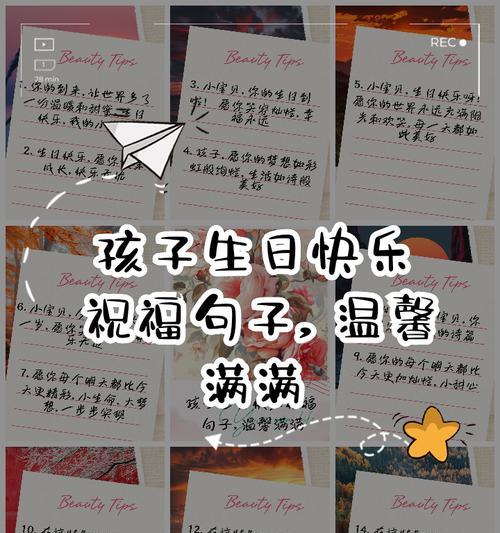 REC
28 min
Beauty Tips
1. 你的到来,让世界多了
一份温暖和甜蜜,生日
快乐,我的小
2. 生日快乐,愿你
成长,快乐无忧
Beauty Tips
3. 小宝贝,你的生日到
啦!愿你笑容灿烂,幸
福永远
4. 孩子,愿你的梦想如彩
虹般绚烂,生活如诗般
美好
Beauty Tips
5. 小宝贝,生日快乐呀!
愿你的世界永远充满阳
光和欢笑,每一天都如
此美好
孩子生日快乐
祝福句子,温馨
满满
Beauty Tips
6. 小宝贝,
一岁,愿你
乐无边
7. 愿你每个明天都比今
天更精彩,小生命,大梦
想,一步步实现
句子,温馨满满
的诗篇
9. 愿你的每一天都比
今天更加灿烂,小甜心
Beauty Tips
10.
Beauty Tips
12.
Beauty Tips
14.